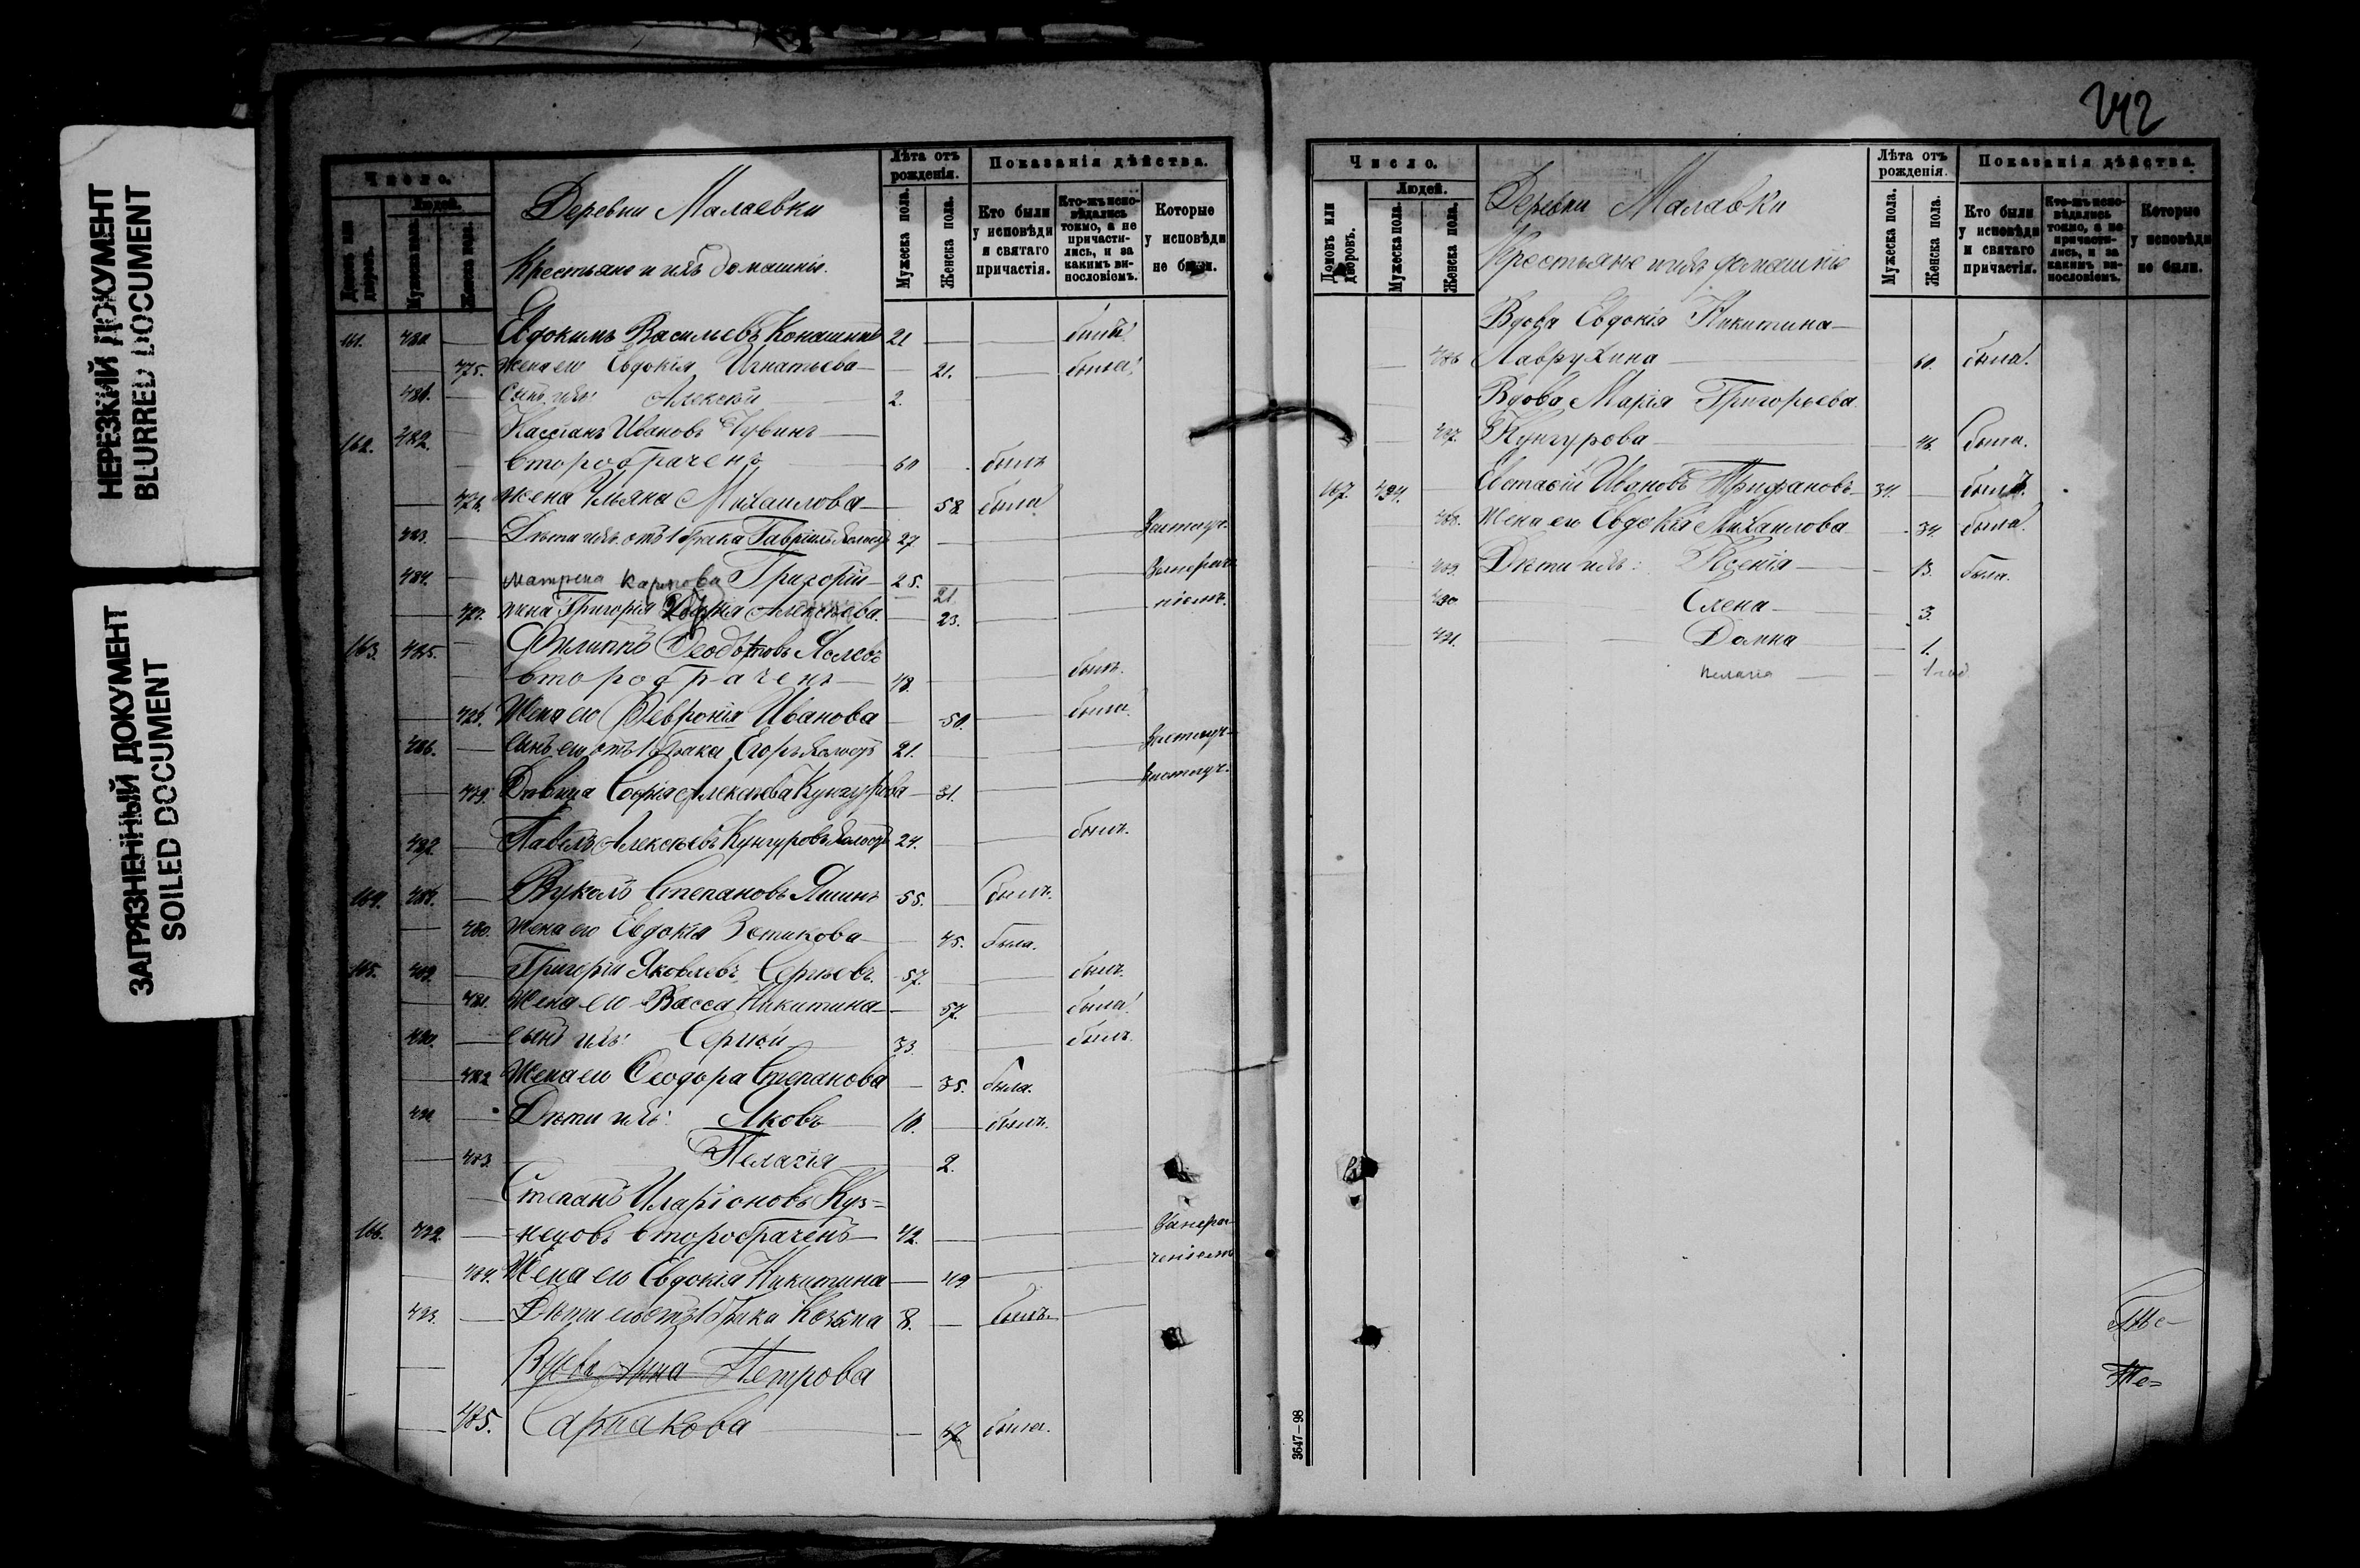 НЕРЕЗКИЙ ДОКУМЕНТ
BLURRED DOCUMENT
ЗАГРЯЗНЕННЫЙ ДОКУМЕНТ
SOILED DOCUMENT
Число.
Людей.
Домовъ или дворовъ.
Мужеска пола.
Женска пола.
Деревни Малаевки
Крестьяне и ихъ домашніе.
Лѣта отъ рожденія.
Мужеска пола.
Женска пола.
Показанія дѣйства.
Кто были у исповѣди и святаго причастія.
Кто-жъ исповѣдались токмо, а не причастились, и за какимъ винословіемъ.
Которые у исповѣди не были.
161. 480 Евдокимъ Васильевъ 21 былъ
475. Жена его Евдокія Игнатьева 21. была
481. Сынъ ихъ: Алексѣй 2.
162. 482. Кассіанъ Ивановъ Чувинъ
второбраченъ 60 былъ
476. Жена Ульяна Михаилова 58 была
483. Дѣти ихъ отъ 1 брака Гавріилъ холостъ 27
484. Матрена Карпова Григорій 25. 21
477. Жена Григорія Софія Алексѣева. 23.
163. 485. Филиппъ Ѳеодотовъ
второбраченъ 48. былъ.
478. Жена его Февронія Иванова 50. была.
486. Сынъ его отъ 1 брака Егоръ холостъ 21.
479. Дѣвица Софія Алексѣева Кунгурова 31.
487. Павелъ Алексѣевъ Кунгуровъ холостъ 24. былъ.
164. 488. Вуколъ Степановъ Яшинъ 55. былъ.
480. Жена его Евдокія 45. была.
165. 489. Григорій Яковлевъ Сергѣевъ. 57. былъ.
481. Жена его Васса Никитина 57. была
490. Сынъ ихъ: Сергѣй 33. былъ
482 Жена его Ѳеодора Степанова 35. была.
491 Дѣти ихъ: Яковъ 10. былъ.
483. Пелагія 2.
Степанъ Иларіоновъ Куз=
166. 492. нецовъ второбраченъ 42.
484. Жена его Евдокія Никитина 49
493. Дѣти его отъ 1 брака Козьма 8. былъ.
Вдова Анна Петрова
485. Сарпакова 67 была.
242
Число.
Людей.
Домовъ или дворовъ.
Мужеска пола.
Женска пола.
Деревни Малаевки
Крестьяне и ихъ домашніе
Лѣта отъ рожденія.
Мужеска пола.
Женска пола.
Показанія дѣйства.
Кто были у исповѣди и святаго причастія.
Кто-жъ исповѣдались токмо, а не причастились, и за какимъ винословіемъ.
Которые у исповѣди не были.
Вдова Евдокія Никитина
486 Лаврухина 60. была.
Вдова Марія Григорьева
487. Кунгурова 46. была.
167. 494. Евстафій Ивановъ Трифановъ 34. былъ.
488. Жена его Евдокія Михаилова 34. была.
489. Дѣти ихъ: Ксенія 13. была.
490 Елена 3.
491. Домна 1.
Пелагія 1 год
3647—98